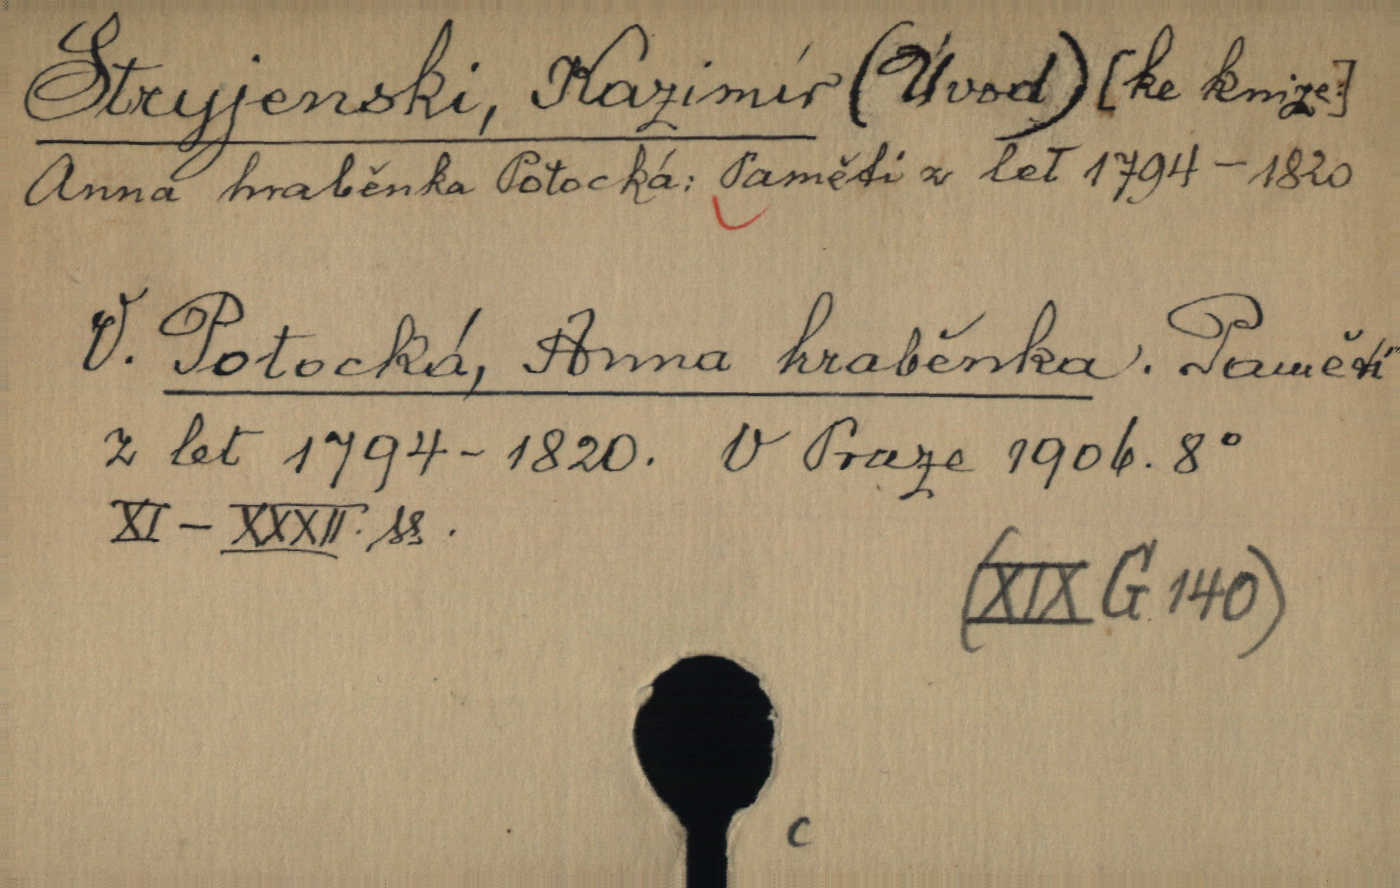 Stryjenski, Kazimír (Úvod) [ke knize:]
Anna hraběnka Potocká: Paměti z let 1794-1820
V. Potocká, Anna hraběnka. Paměti
z let 1794-1820. V Praze 1906. 8°
XI-XXXII. ss.
(XIX G 140)
c